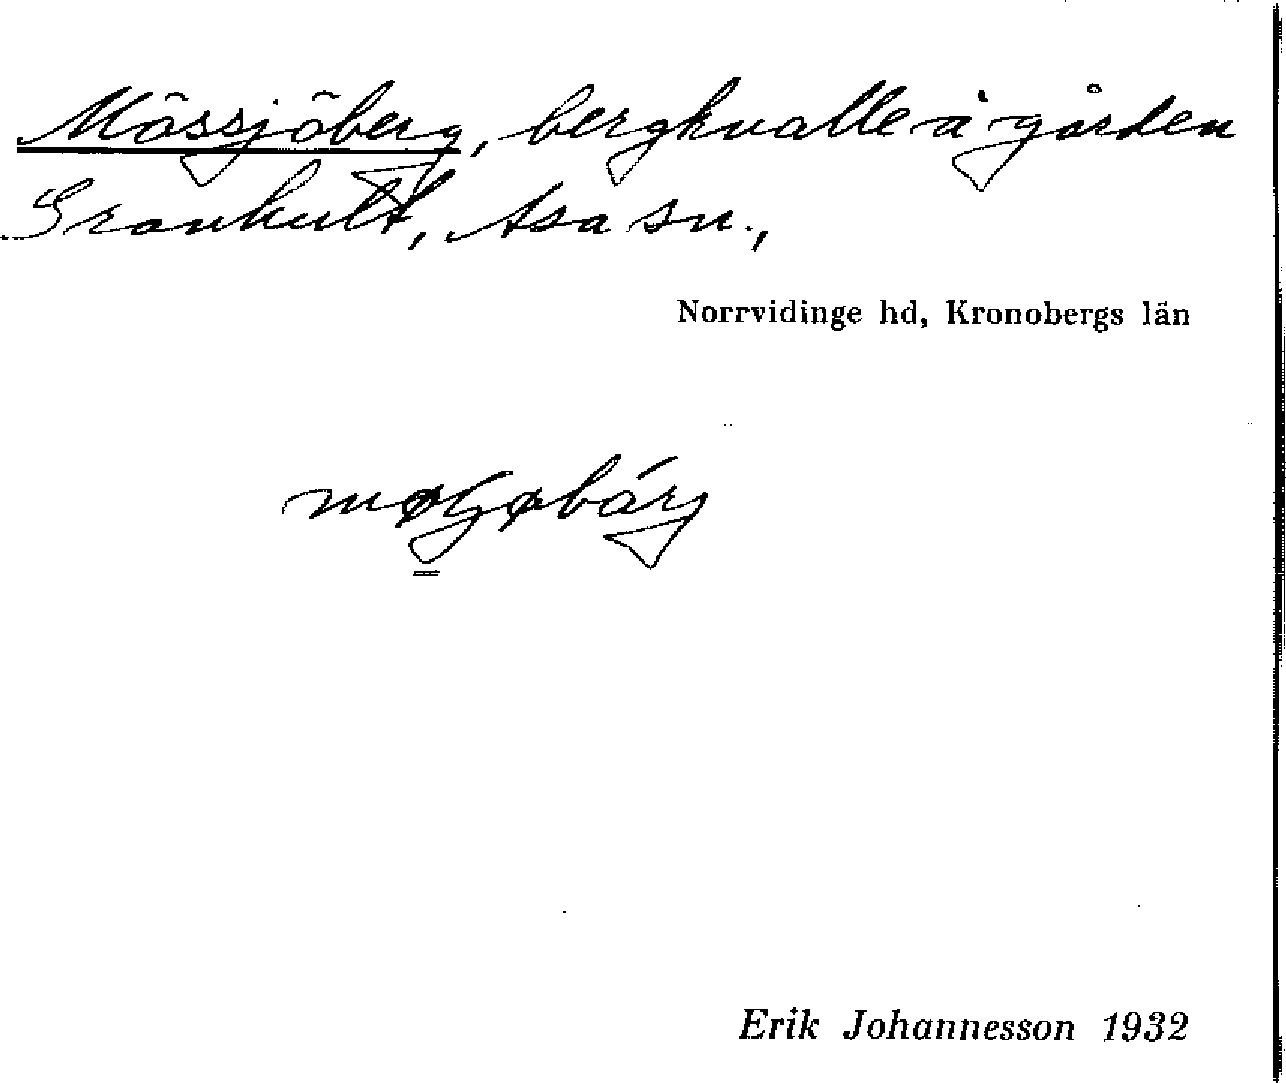 Mössjöberg, bergkvalle å gården
Granhult, Asa sn.,
Norrvidinge hd, Kronobergs län
Erik Johannesson 1932